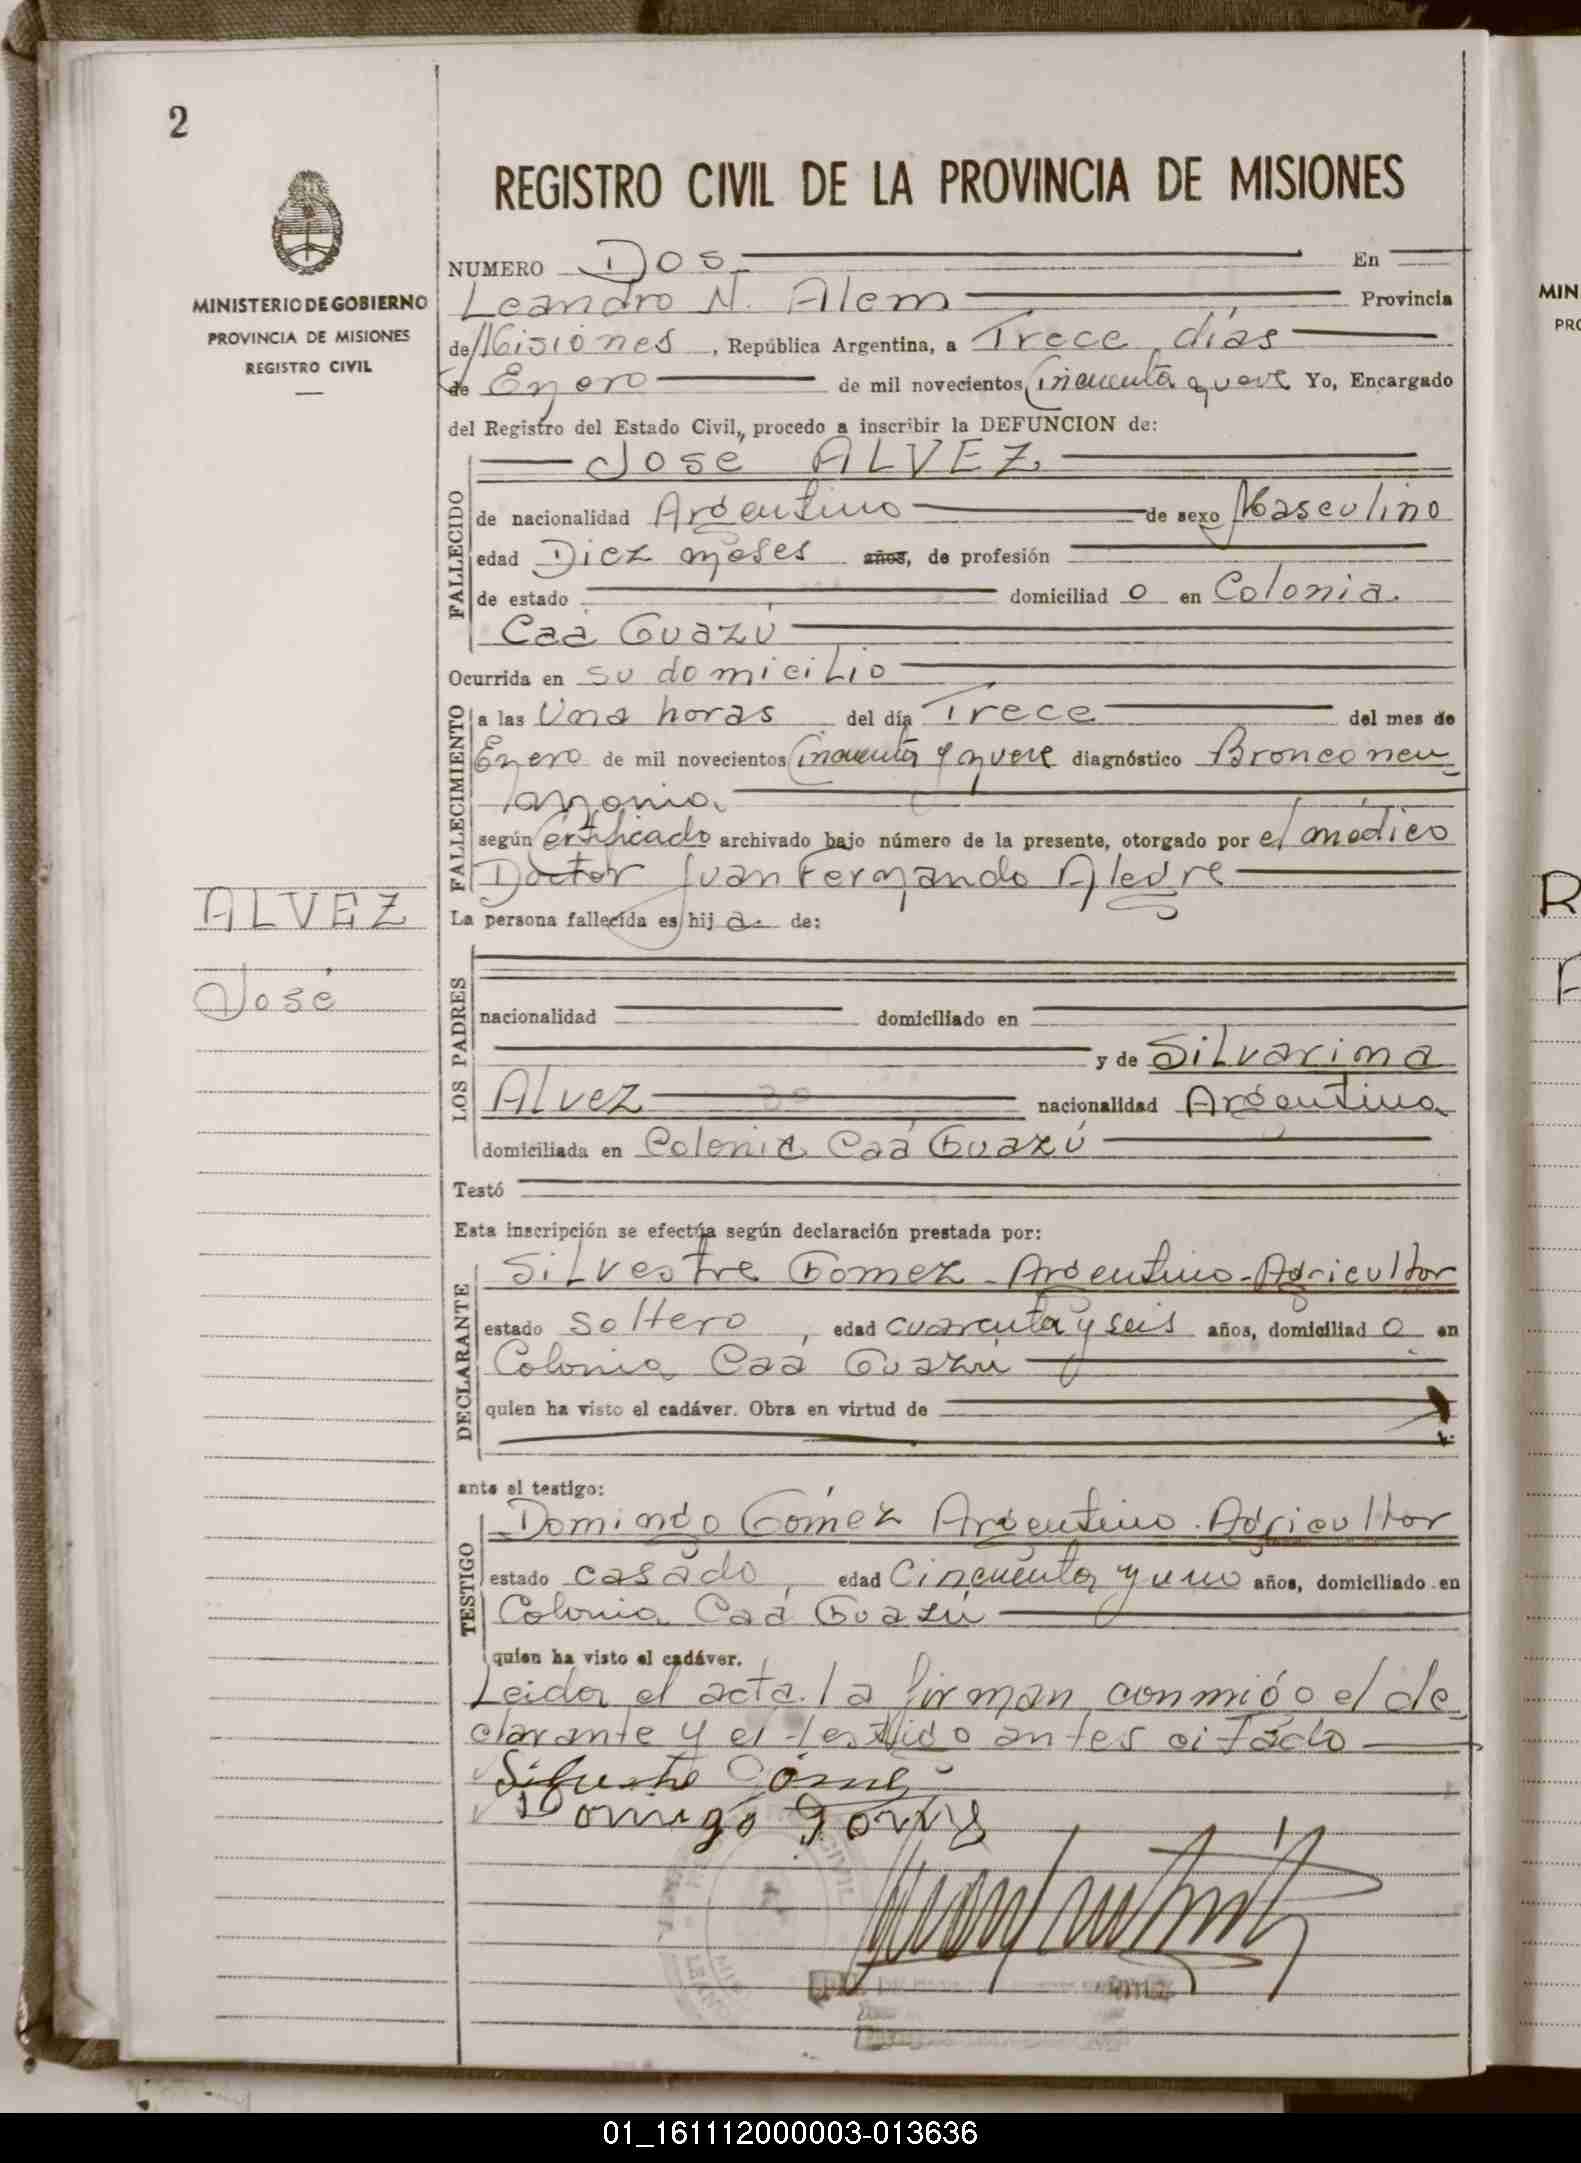 2
MINISTERIO DE GOBIERNO
PROVINCIA DE MISIONES
REGISTRO CIVIL
ALVEZ
José
REGISTRO CIVIL DE LA PROVINCIA DE MISIONES
NUMERO Dos En
Leandro N. Alem Provincia
de Misiones, República Argentina, a Trece días
de Enero de mil novecientos Cincuenta y nueve Yo, Encargado
del Registro del Estado Civil, procedo a inscribir la DEFUNCION de:
Jose ALVEZ
FALLECIDO
de nacionalidad Argentino de sexo Masculino
edad Diez meses años, de profesión
de estado domiciliad o en Colonia
Caá Guazú
Ocurrida en su domicilio
FALLECIMIENTO
a las Una horas del día Trece del mes de
Enero de mil novecientos Cincuenta y nueve diagnóstico Bronconeu-
monia
según Certificado archivado bajo número de la presente, otorgado por el médico
Doctor Juan Fernando Alegre
La persona fallecida es hij a de:
LOS PADRES
nacionalidad domiciliado en
y de Silvarina
Alvez nacionalidad Argentina
domiciliada en Colonia Caá Guazú
Testó
Esta inscripción se efectúa según declaración prestada por:
DECLARANTE
Silvestre Gomez - Argentino - Agricultor
estado Soltero, edad cuarenta y seis años, domiciliad o en
Colonia Caá Guazú
quien ha visto el cadáver. Obra en virtud de
ante el testigo:
TESTIGO
Domingo Gómez Argentino - Agricultor
estado casado, edad Cincuenta y uno años, domiciliado en
Colonia Caá Guazú
quien ha visto el cadáver.
Leida el acta la firman conmigo el de-
clarante y el testigo antes citado
Domingo
CIVIL
MIN
PRO
R
01_161112000003-013636